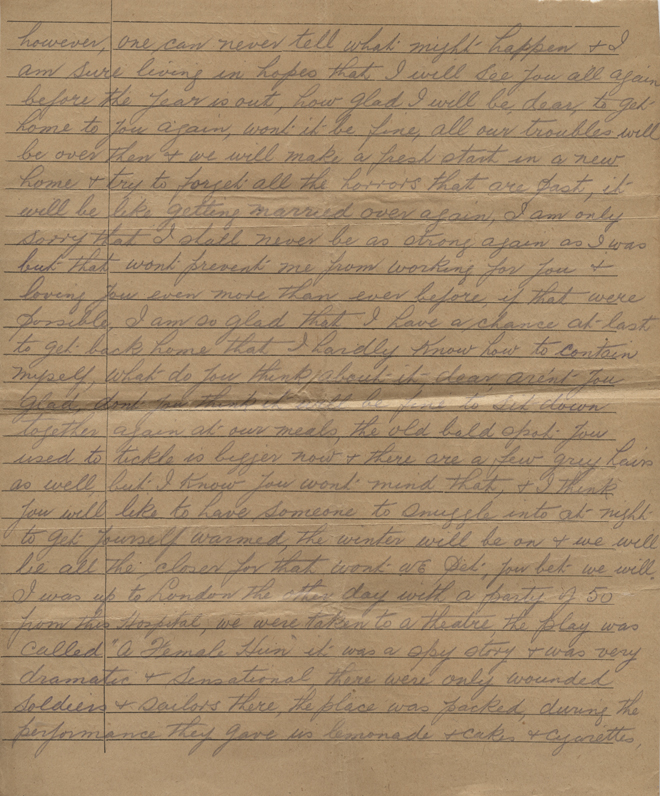 however, one can never tell what might happen & I
am sure living in hopes that I will see you all again
before the year is out, how glad I will be, dear, to get
home to you again, wont it be fine, all our troubles will
be over then & we will make a fresh start in a new
home & try to forget all the horrors that are past, it
will be like getting married over again, I am only
sorry that I shall never be as strong again as I was
but that wont prevent me from working for you &
loving you even more than ever before, if that were
possible, I am so glad that I have a chance at last
to get back home that I hardly know how to contain
myself, what do you think about it dear, arent you
glad, dont you think it will be fine to sit down
together again at our meals, the old bald spot you
used to tickle is bigger now & there are a few grey hairs
as well, but I know you wont mind that, & I think
you will like to have someone to snuggle into at night
to get yourself warmed the winter will be on & we will
be all the closer for that wont we Pet, you bet we will.
I was up to London the other day with a party of 50
from this Hospital, we were taken to a theatre the play was
called "A Female Hun" it was a spy story & was very
dramatic & sensational, there were only wounded
soldiers & sailors there, the place was packed, during the
performance they gave us lemonade & cakes & cigarettes,